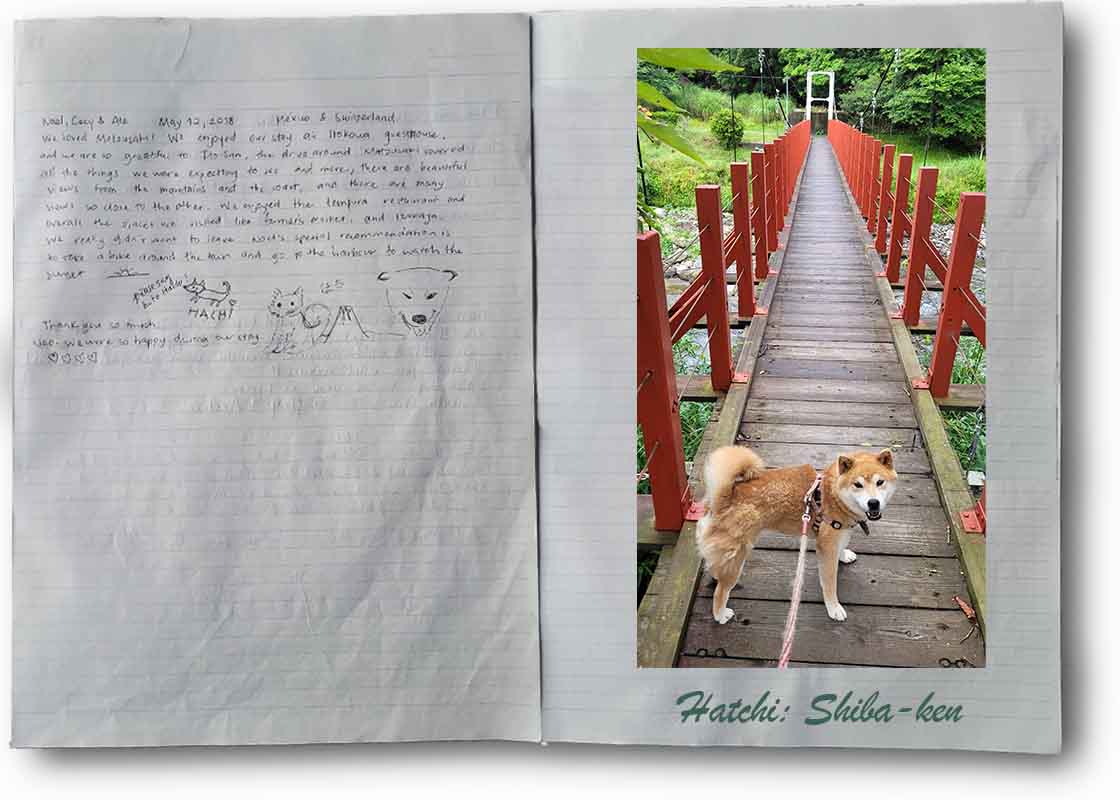 Noel, Cecy & Ale May 12, 2018 Mexico & Switzerland
We loved Matzusaki! We enjoyed our stay at Itokawa guesthouse,
and we are so grateful to Ito-san, the drive around Matzusaki covered
all the things we were expecting to see and more, there are beautiful
views from the mountains and the coast, and there are many
views so close to the other. We enjoyed the tempura restaurant and
overall the places we visited like farmer's market, and
We really didn't want to leave. Noel's special recommendation is
to take a bike around the town and go to the harbour to watch the
sunset
Please say
HACHI
はち
Thank you so much
we were so happy during our stay.
Hatchi: Shiba-ken